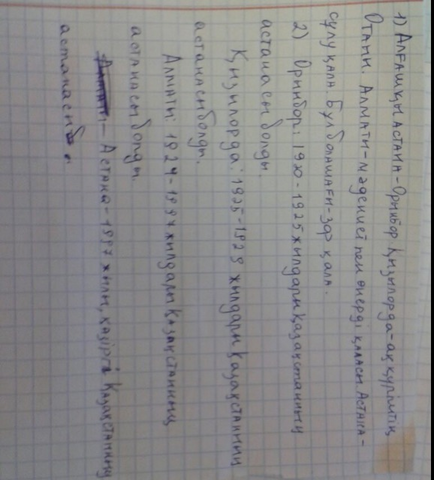 1) Алғашқы астана - Орынбор Қызылорда - ақ күріштің
Отаны. Алматы - мәдениет пен өнерді қаласы Астана -
сұлу қала. Бұл болашағы - зор қала.
2) Орынбор: 1920 - 1925 жылдары Қазақстанның
астанасы болды
Қызылорда: 1925 - 1929 жылдары Қазақстанның
астанасы болды.
Алматы: 1929 - 1997 жылдары Қазақстанның
астанасы болды
Астана - 1997 жылы, қазіргі Қазақстанның
астанасы.